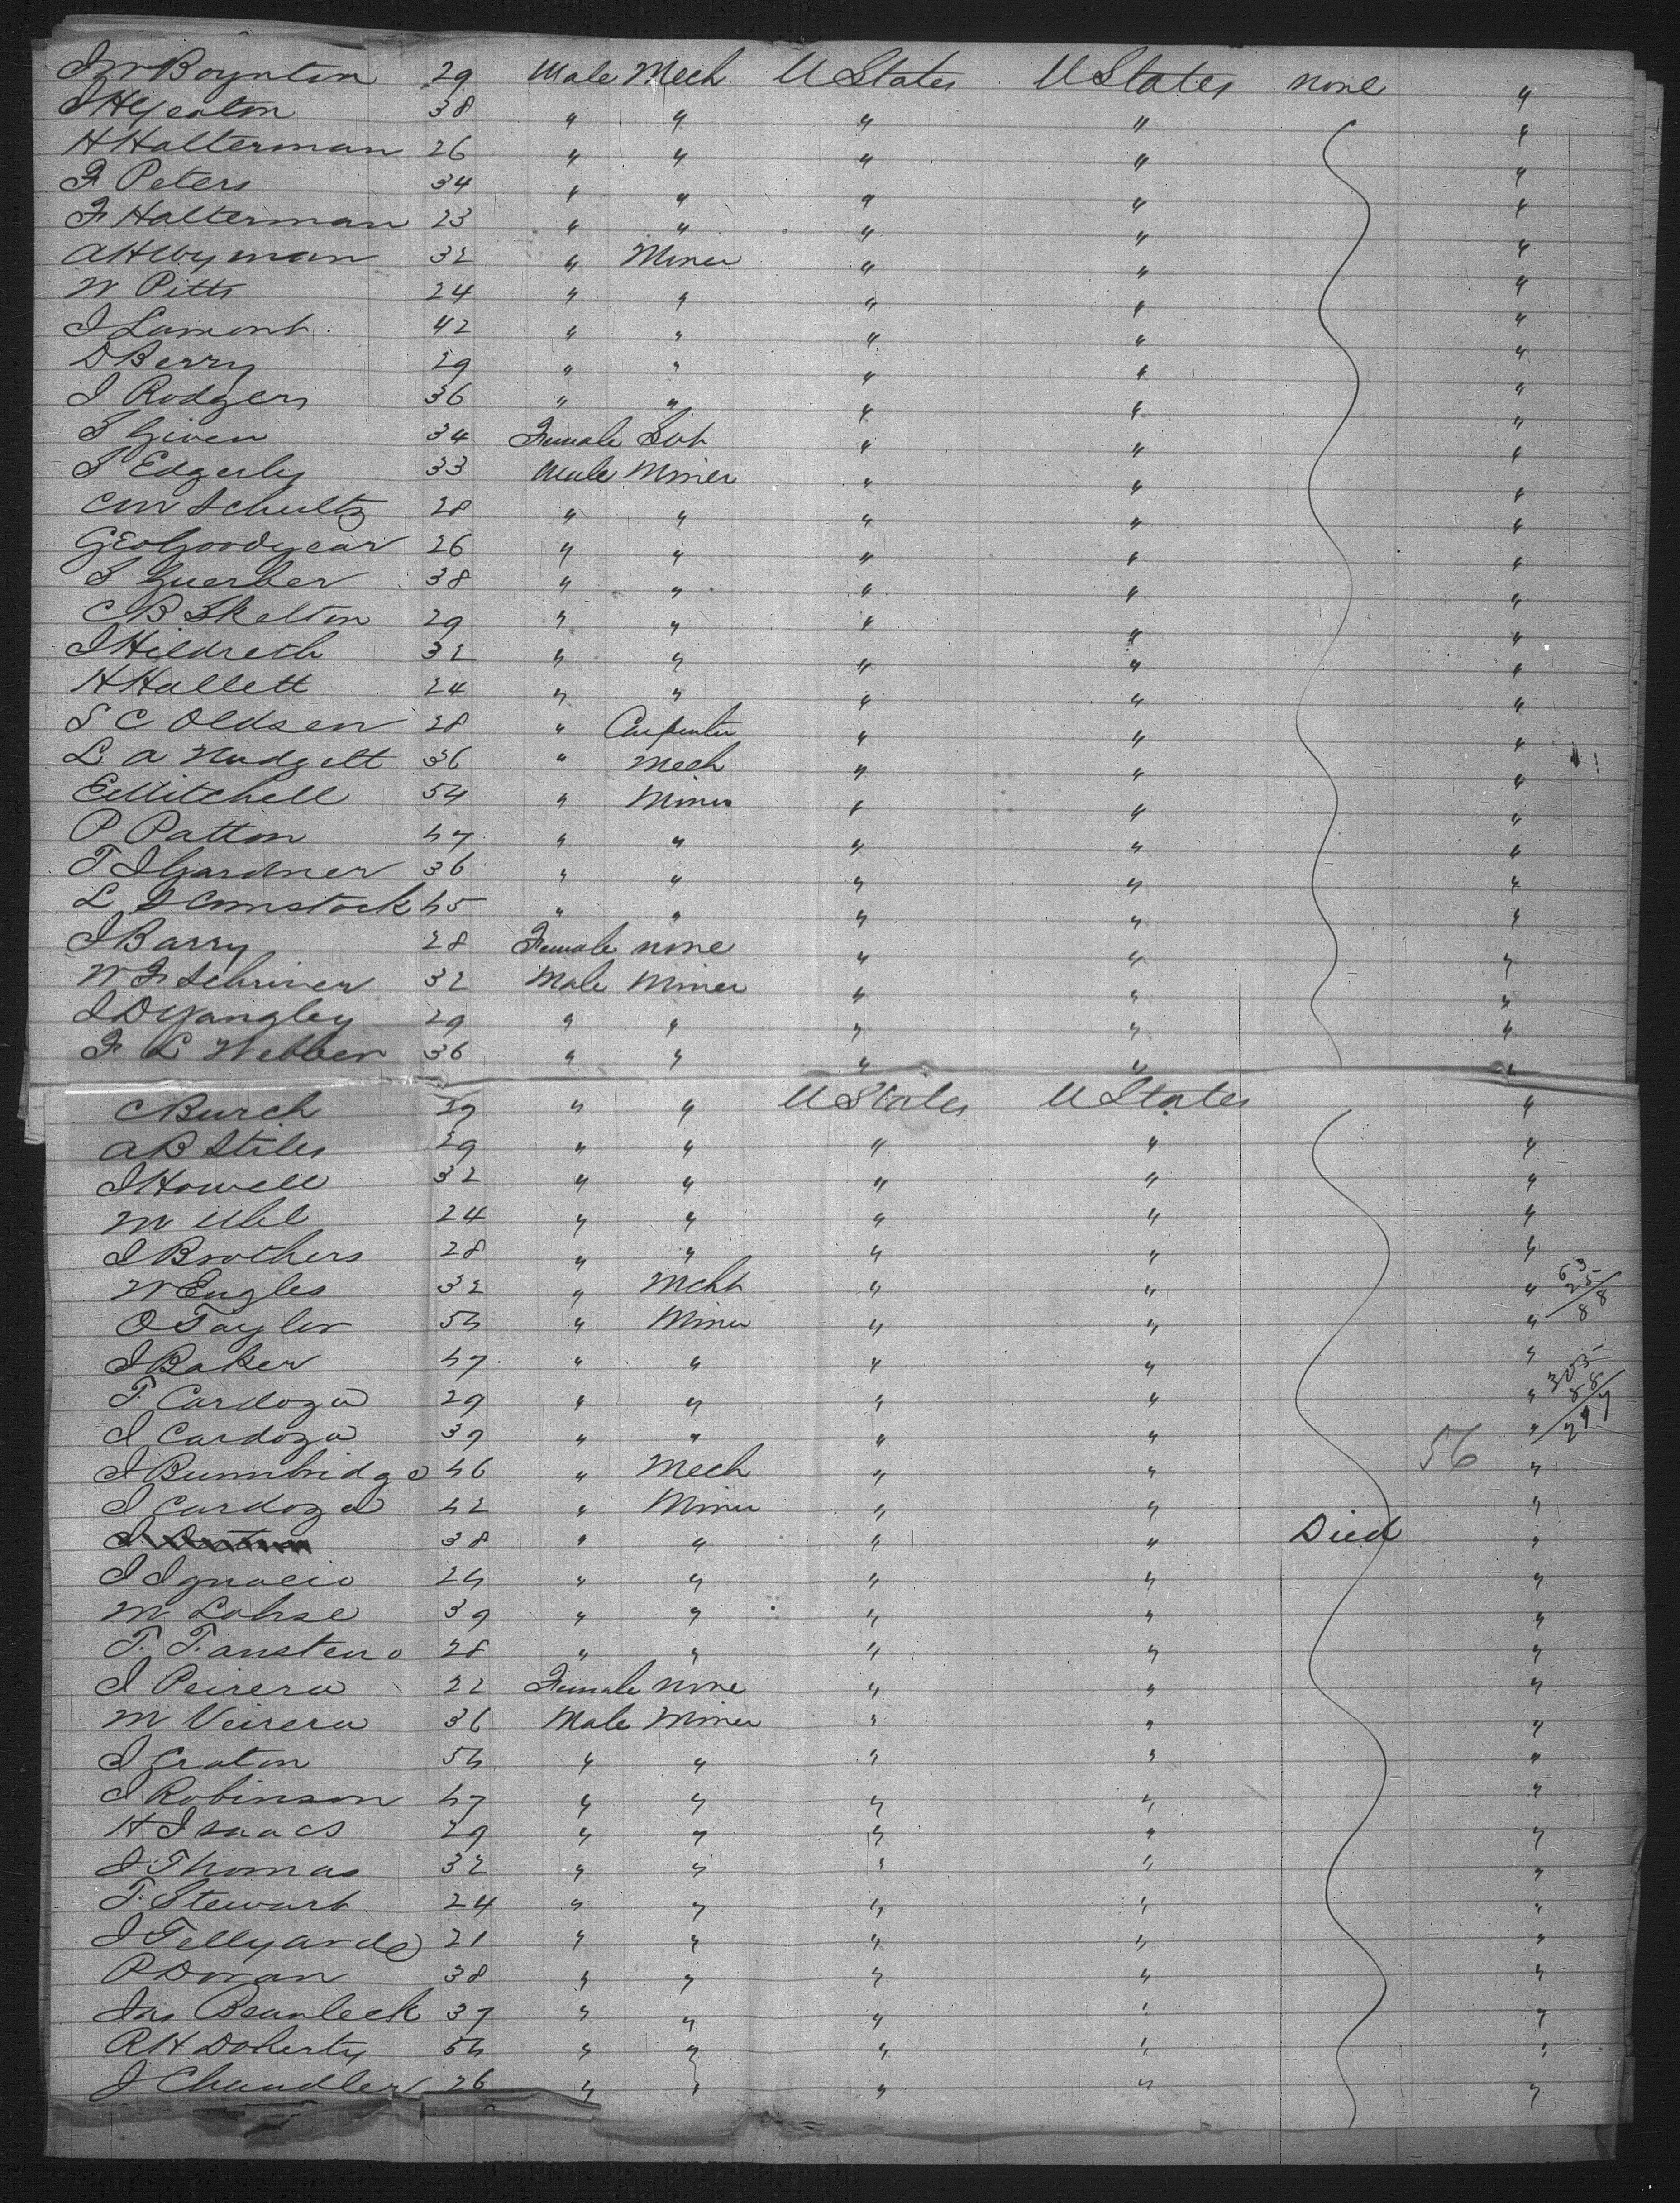 J W Boynton 29 Male Mech U States U States none "
J H Yeaton 38 " " " " "
H Halterman 26 " " " " "
F Peters 34 " " " " "
F Halterman 23 " " " " "
A H Wyman 32 " Miner " " "
W Pitts 24 " " " " "
J Lamont 42 " " " " "
D Berry 29 " " " " "
J Rodgers 36 " " " " "
S Given 34 Female " " "
S Edgerly 33 Male Miner " " "
C W Schultz 28 " " " " "
Geo Goodyear 26 " " " " "
S Guerber 38 " " " " "
C B Skelton 29 " " " " "
J Hildreth 32 " " " " "
H Hallett 24 " " " " "
S C Oldsen 28 " Carpenter " " "
L A Nudgett 36 " Mech " " "
E Mitchell 54 " Miner " " "
P Patton 47 " " " " "
T J Gardner 36 " " " " "
L S Comstock 45 " " " " "
J Barry 28 Female none " " "
W F Schriver 32 Male Miner " " "
J D Yangley 29 " " " " "
F L Webber 36 " " " " "
C Burch 39 " " U States U States "
A B Stiles 29 " " " " "
J Howell 32 " " " " "
M Uhl 24 " " " " "
J Brothers 28 " " " " "
W Engles 32 " Mcht " " " 63
O Taylor 54 " Miner " " " 25 88
J Baker 47 " " " " "
F Cardoza 29 " " " " " 88
J Cardoza 39 " " " " "
J Bumbridge 46 " Mech " " 56 "
J Cardoza 42 " Miner " " "
J 38 " " " " Died "
J Ignacio 24 " " " " "
M Lohse 39 " " " " "
F. Fansteno 28 " " " " "
J Peirera 22 Female none " " "
M Veirera 36 Male Miner " " "
J Craton 54 " " " " "
J Robinson 47 " " " " "
H Isaacs 29 " " " " "
J Thomas 32 " " " " "
F. Stewart 24 " " " " "
J Tellyarde 21 " " " " "
P Doran 38 " " " " "
Jas Beanleck 37 " " " " "
R H Doherty 54 " " " " "
J Chandler 26 " " " " "